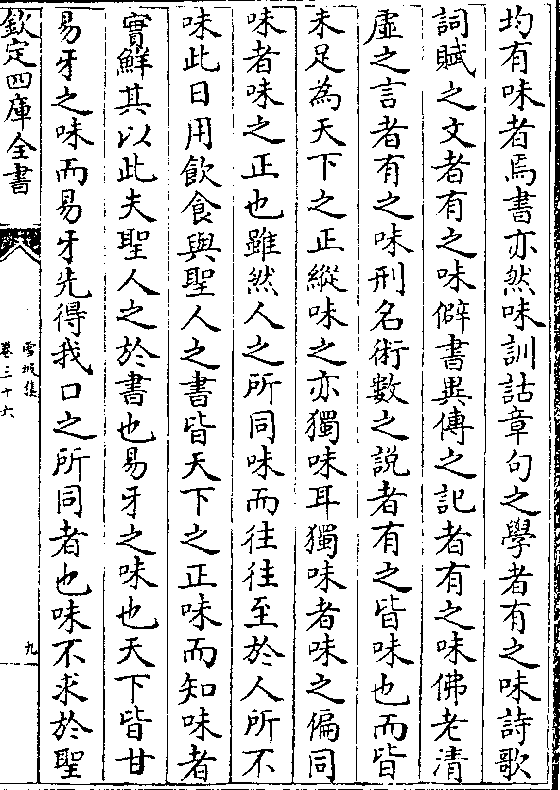 均有味者焉書亦然味訓詁章句之學者有之味詩歌
詞賦之文者有之味僻書異傳之記者有之味佛老清
虛之言者有之味刑名術數之說者有之皆味也而皆
未足為天下之正縱味之亦獨味耳獨味者味之偏同
味者味之正也雖然人之所同味而往往至於人所不
味此日用飲食與聖人之書皆天下之正味而知味者
實鮮其以此夫聖人之於書也易牙之味也天下皆甘
易牙之味而易牙先得我口之所同者也味不求於聖
欽定四庫全書
雪坡集
卷三十六
九